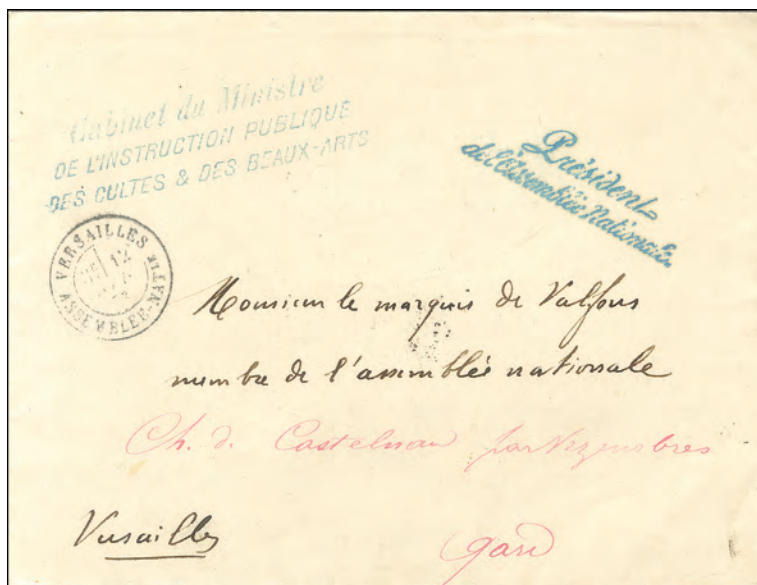 Cabinet du Ministre
DE L'INSTRUCTION PUBLIQUE
DES CULTES & DES BEAUX-ARTS
Président
de l'Assemblée Nationale
VERSAILLES
12
ASSEMBLEE-NATLE
Monsieur le marquis de Valfons
membre de l'assemblée nationale
Ch. d. Castelnau par Vezenobres
Versailles
Gard